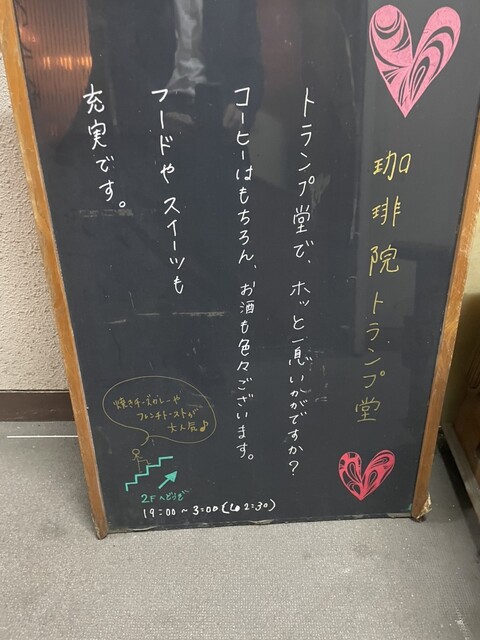 珈琲院 トランプ堂
トランプ堂で、ホッと一息いかがですか?
コーヒーはもちろん、お酒も色々ございます。
フードや スイーツも
充実です。
焼きチーズカレーや
フレンチトーストが
大人気♪
2Fへどうぞ
19:00~3:00(LO 2:30)